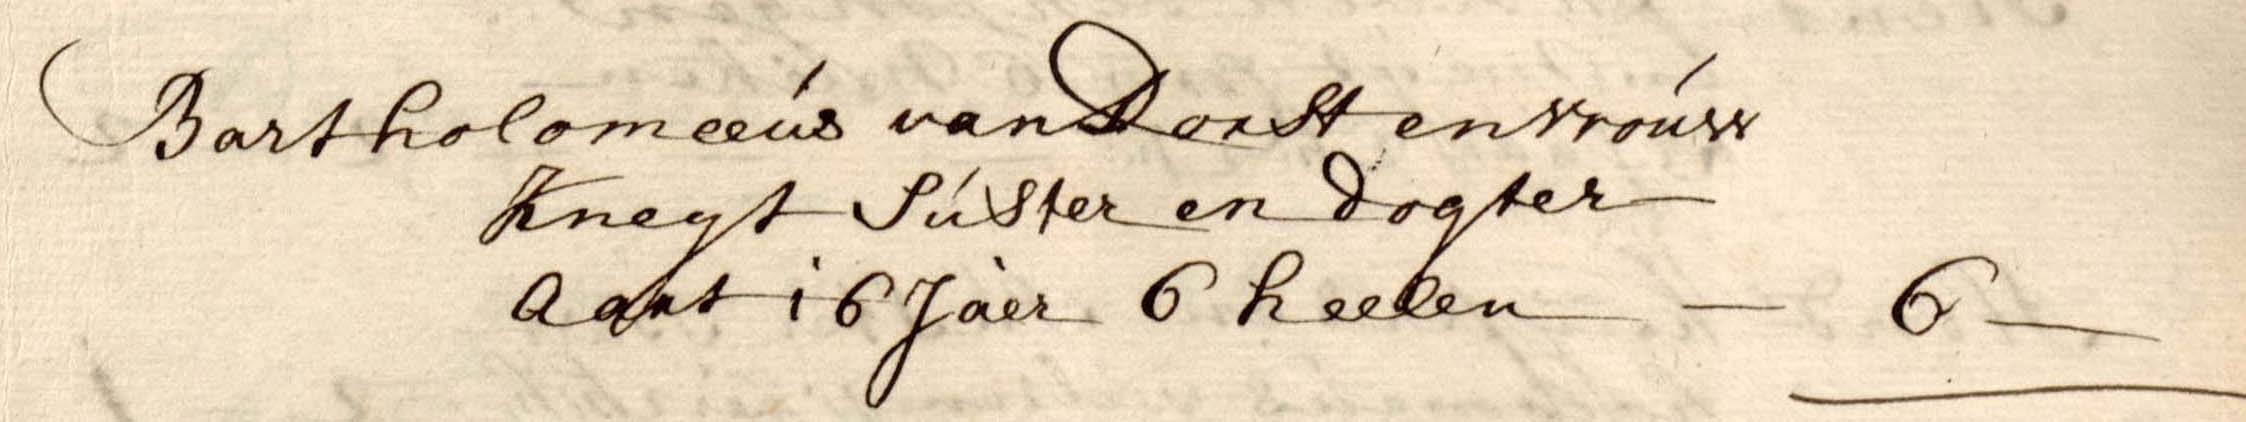 Bartholomeeus van Dorst en vrouw
Kneyt Suster en dogter
Aart 16 Jaer 6 heelen — 6 —